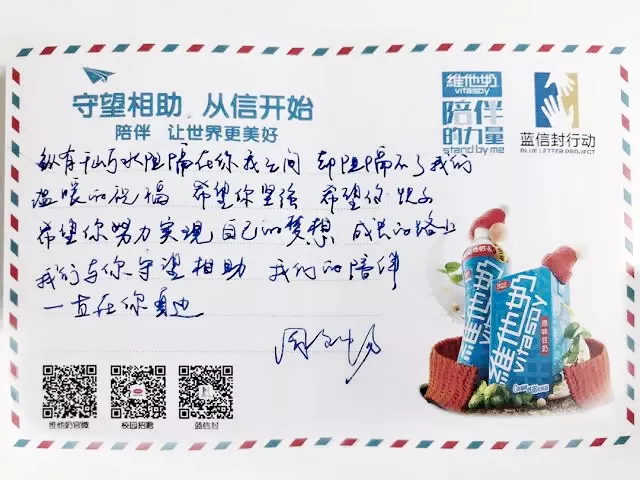 守望相助 从信开始
陪伴 让世界更美好
維他奶
vitasoy
陪伴
的力量
stand by me
蓝信封行动
BLUE LETTER PROJECT
纵有千山与水阻隔在你我之间 却阻隔不了我们
温暖的祝福 希望你坚强 希望你快乐
希望你努力实现自己的梦想 成长的路上
我们与你守望相助 我们的陪伴
一直在你身边
維他奶
vitasoy
維他奶
vitasoy
原味豆奶
维他奶官微
校园招聘
蓝信封